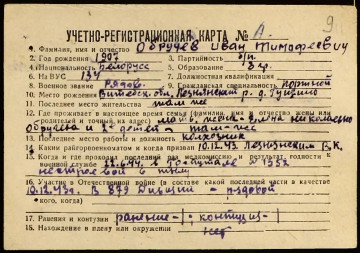 9
УЧЕТНО-РЕГИСТРАЦИОННАЯ КАРТА № А.
1. Фамилия, имя и отчество Обручев Иван Тимофеевич
2. Год рождения 1907 3. Партийность б/п
4. Национальность Белорус 5. Образование 3 гр.
6. На ВУС 134 7. Должностная квалификация
8. Военное звание рядов. 9. Гражданская специальность портной
10. Место рождения Витебск. обл. Лезнянский р. д.
11. Последнее место жительства там-же
12. Где проживает в настоящее время семья (фамилия, имя и отчество жены или
родителей и точный их адрес)
Обручева и 2е детей там-же
13. Последнее место работы и должность колхозник
14. Каким райгорвоенкоматом и когда призван 10.12.43 Лезнянским В.К.
15. Когда и где проходил последний раз медкомиссию и результат годности к
военной службе 22.6.44.
нестроевой в тылу
16. Участие в Отечественной войне (в составе какой последней части в качестве
кого, когда) 10.12.43г. В 879 дивизии - рядовой
17. Ранения и контузии ранение-1; контузия-1
18. Нахождение в плену или окружении нет